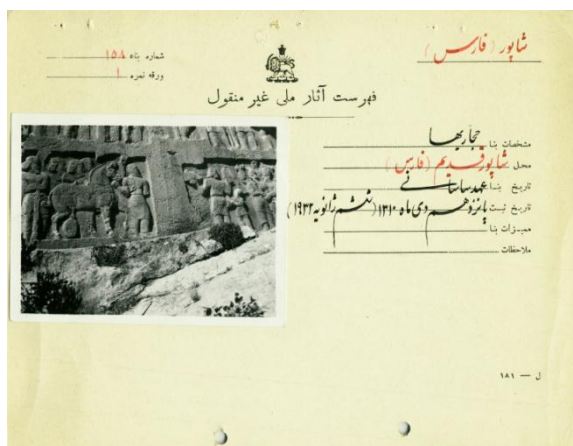 شاپور (فارس)
شماره بناء ۱۵۸
ورقه نمره ۱
فهرست آثار ملی غیر منقول
مشخصات بنا حجاریها
محل شاپور قدیم (فارس)
تاریخ بنا عهد ساسانی
تاریخ ثبت پانزدهم دی ماه ۱۳۱۰ (ششم ژانویه ۱۹۳۲)
ممیزات بنا
ملاحظات
ل — ۱۸۱